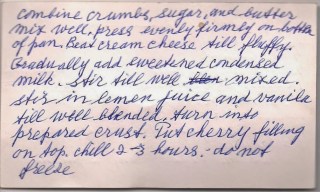 combine crumbs, sugar, and butter
mix well, press evenly firmly on bottom
of pan. Beat cream cheese till fluffy.
Gradually add sweetened condensed
milk. stir till well mixed.
stir in lemon juice and vanila
till well blended. turn into
prepared crust. Put cherry filling
on top. chill 2-3 hours. - do not